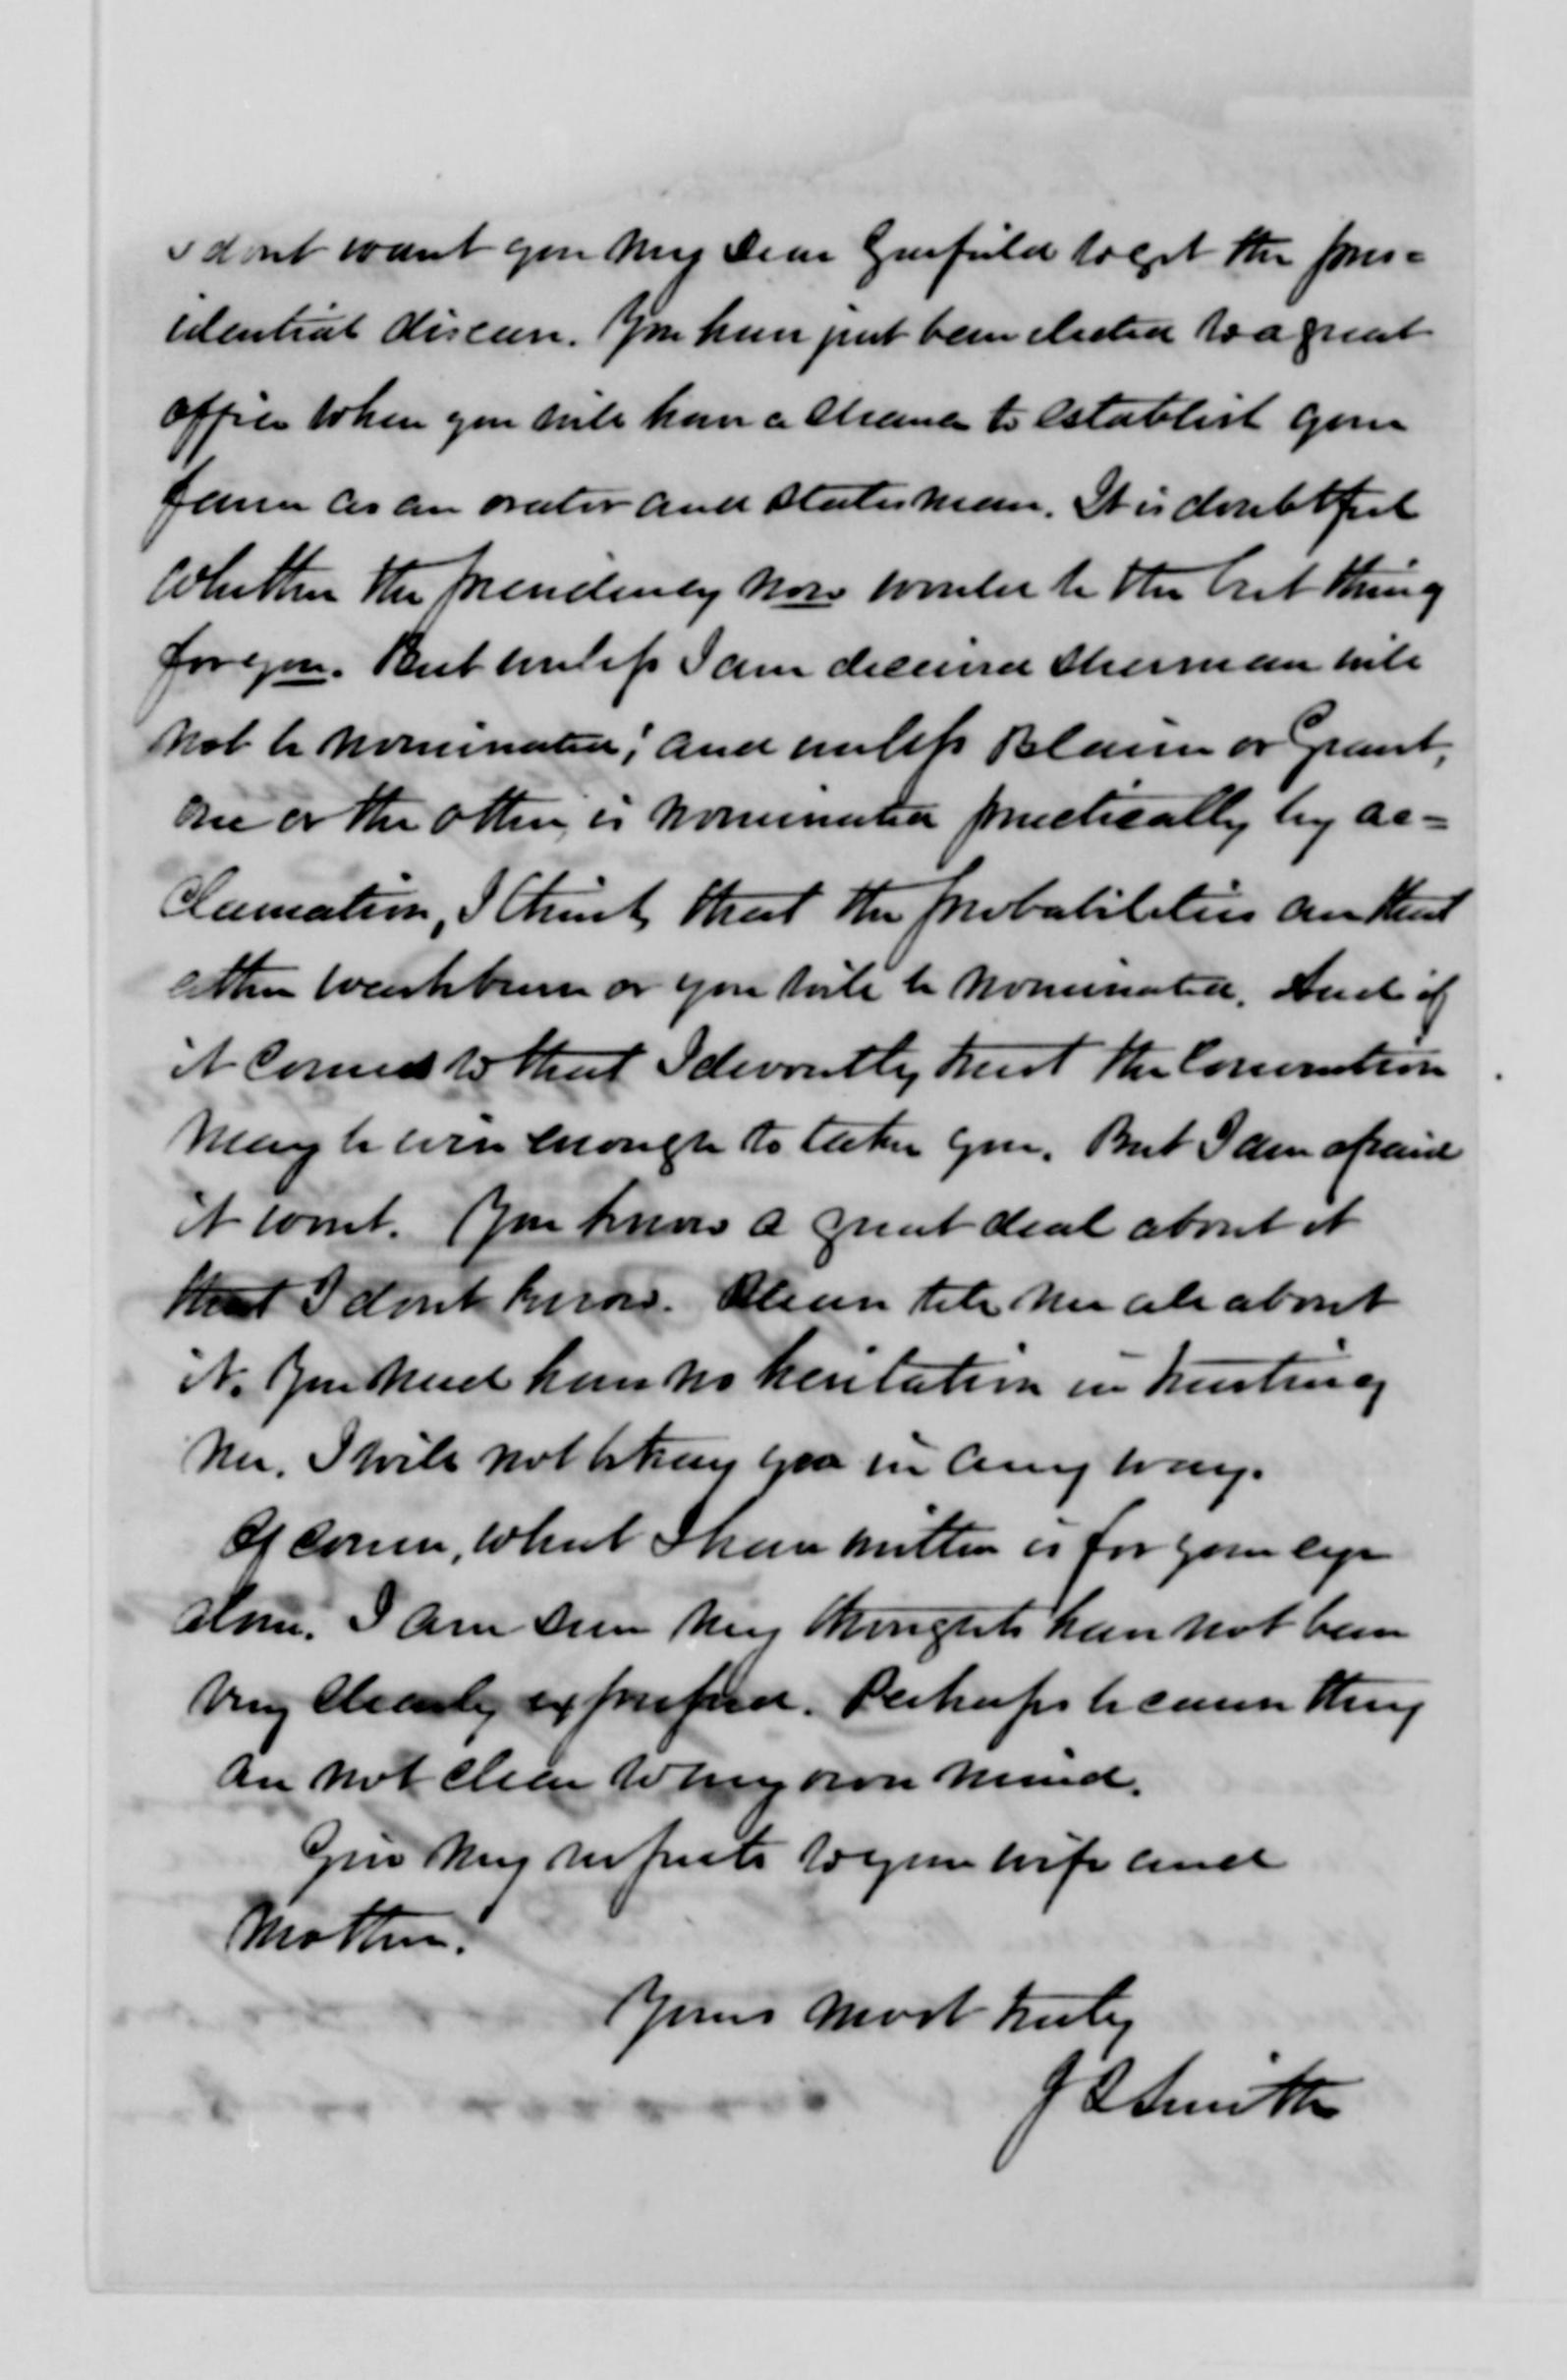 I dont want you my dear Garfield to get the pres=
idential disease. You have just been elected to a great
office where you will have a chance to establish your
fame as an orator and statesman. It is doubtful
whether the presidency now would be the best thing
for you. But unless I am deceived Sherman will
not be nominated; and unless Blaine or Grant,
one or the other, is nominated practically by ac=
clamation, I think that the probabilities are that
either Washburne or you will be nominated. And if
it comes to that I devoutly trust the Convention
may be wise enough to take you. But I am afraid
it wont. You know a great deal about it
that I dont know. Please tell me all about
it. You need have no hesitation in trusting
me. I will not betray you in any way.
Of course, what I have written is for your eye
alone. I am sure my thoughts have not been
very clearly expressed. Perhaps because they
are not clear to my own mind.
Give my respects to your wife and
mother.
Yours most truly
J Q Smith